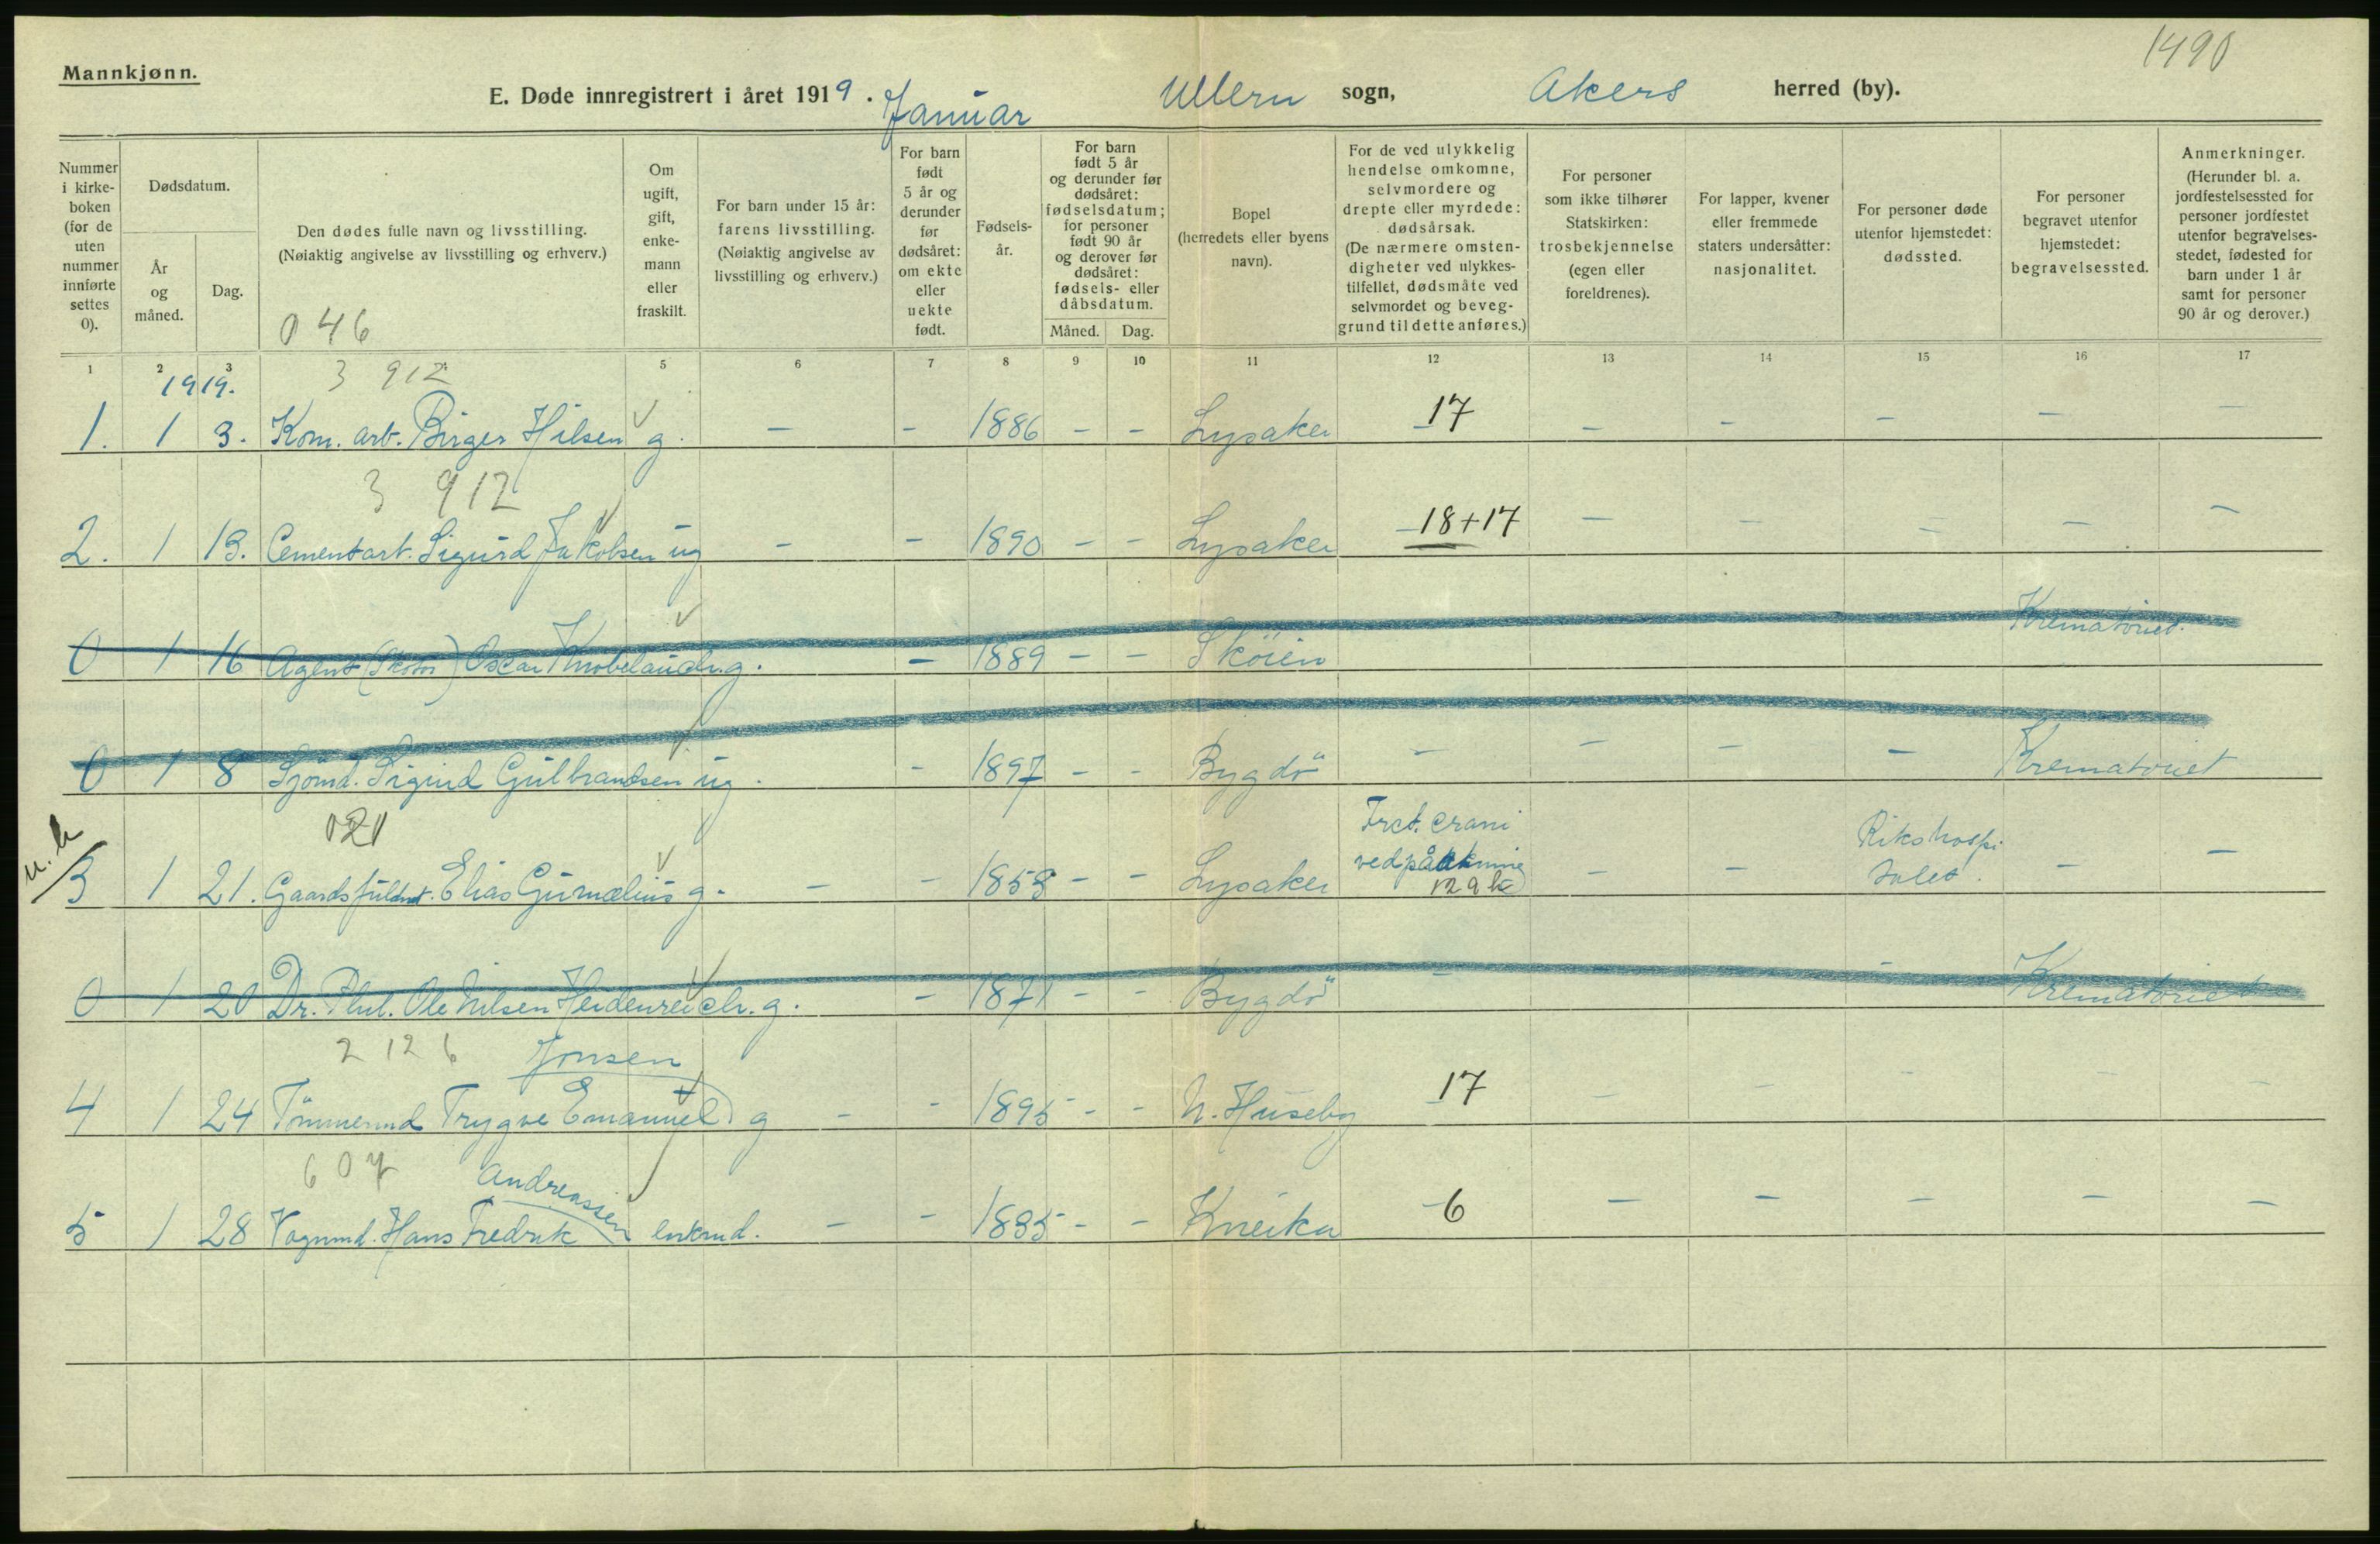 1490
Mannkjønn.
E. Døde innregistrert i året 1919. Januar Ullern sogn, Akers herred (by).
Nummer i kirkeboken (for de uten nummer innførte settes 0).
Dødsdatum.
År og måned.
Dag.
Den dødes fulle navn og livsstilling.
(Nøiaktig angivelse av livsstilling og erhverv.)
046
Om ugift, gift, enkemann eller fraskilt.
For barn under 15 år: farens livsstilling. (Nøiaktig angivelse av livsstilling og erhverv.)
For barn født 5 år og derunder før dødsåret: om ekte eller uekte født.
Fødselsår.
For barn født 5 år og derunder før dødsåret: fødselsdatum; for personer født 90 år og derover før dødsåret: fødsels- eller dåbsdatum.
Måned. Dag.
Bopel (herredets eller byens navn).
For de ved ulykkelig hendelse omkomne, selvmordere og drepte eller myrdede: dødsårsak. (De nærmere omstendigheter ved ulykkestilfellet, dødsmåte ved selvmordet og beveggrund til dette anføres.)
For personer som ikke tilhører Statskirken: trosbekjennelse (egen eller foreldrenes).
For lapper, kvener eller fremmede staters undersåtter: nasjonalitet.
For personer døde utenfor hjemstedet: dødssted.
For personer begravet utenfor hjemstedet: begravelsessted.
Anmerkninger. (Herunder bl. a. jordfestelsessted for personer jordfestet utenfor begravelsesstedet, fødested for barn under 1 år samt for personer 90 år og derover.)
1 2 3 5 6 7 8 9 10 11 12 13 14 15 16 17
1919. 3 912
1. 1 3. Kom. arb. Birger Hilsen g. - - 1886 - - Lysaker 17 - - - - -
3 912
2. 1 13. Cementarb. Sigurd Jakobsen ug - - 1890 - - Lysaker 18+17 - - - - -
0 1 16 Agent Oscar Knobelauch g. - 1889 - - Sköien Krematoriet.
0 1 8 Sjömd. Sigurd Gulbrandsen ug. - 1897 - - Bygdö - - - - Krematoriet
021
3 1 21. Elias Gurnælius g. - - 1858 - - Lysaker Frct. crani ved påkjøring - - Rikshospitalet. - -
0 1 20 Dr. Phil. Ole Nilsen Heidenreich. g. - 1871 - - Bygdö - - Krematoriet
2 126 Jonsen
4 1 24 Tömmermd Trygve Emanuel g - - 1895 - - N. Huseby 17 - - - - -
607 Andreassen
5 1 28 Vognmd. Hans Fredrik enkemd. - - 1835 - - Kneika 6 - - - - -